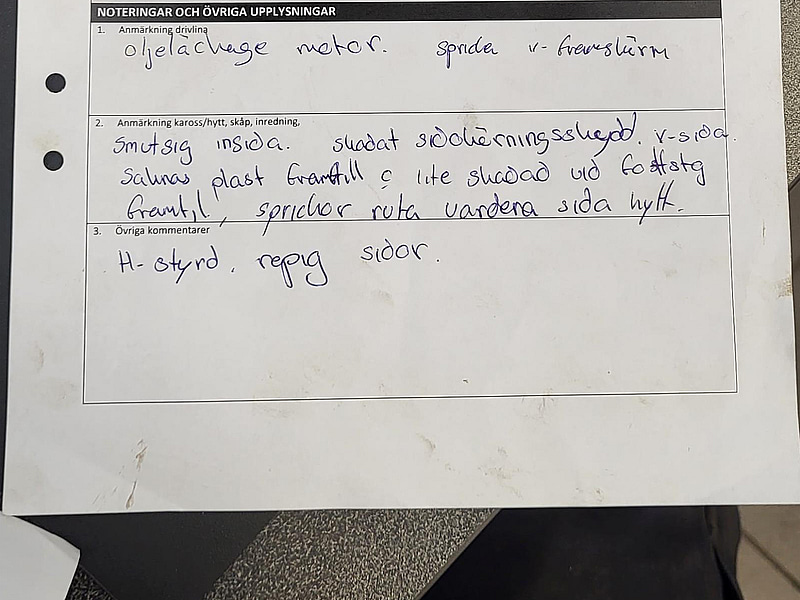 NOTERINGAR OCH ÖVRIGA UPPLYSNINGAR
1. Anmärkning drivlina
oljeläckage motor. sprida v-framskärm
2. Anmärkning kaross/hytt, skåp, inredning,
Smutsig insida. skadat sidokörningsskydd. v-sida.
Saknas plast framtill lite skadad vid fotstg
framtil, sprickor ruta vardera sida hytt.
3. Övriga kommentarer
H-styrd. repig sidor.